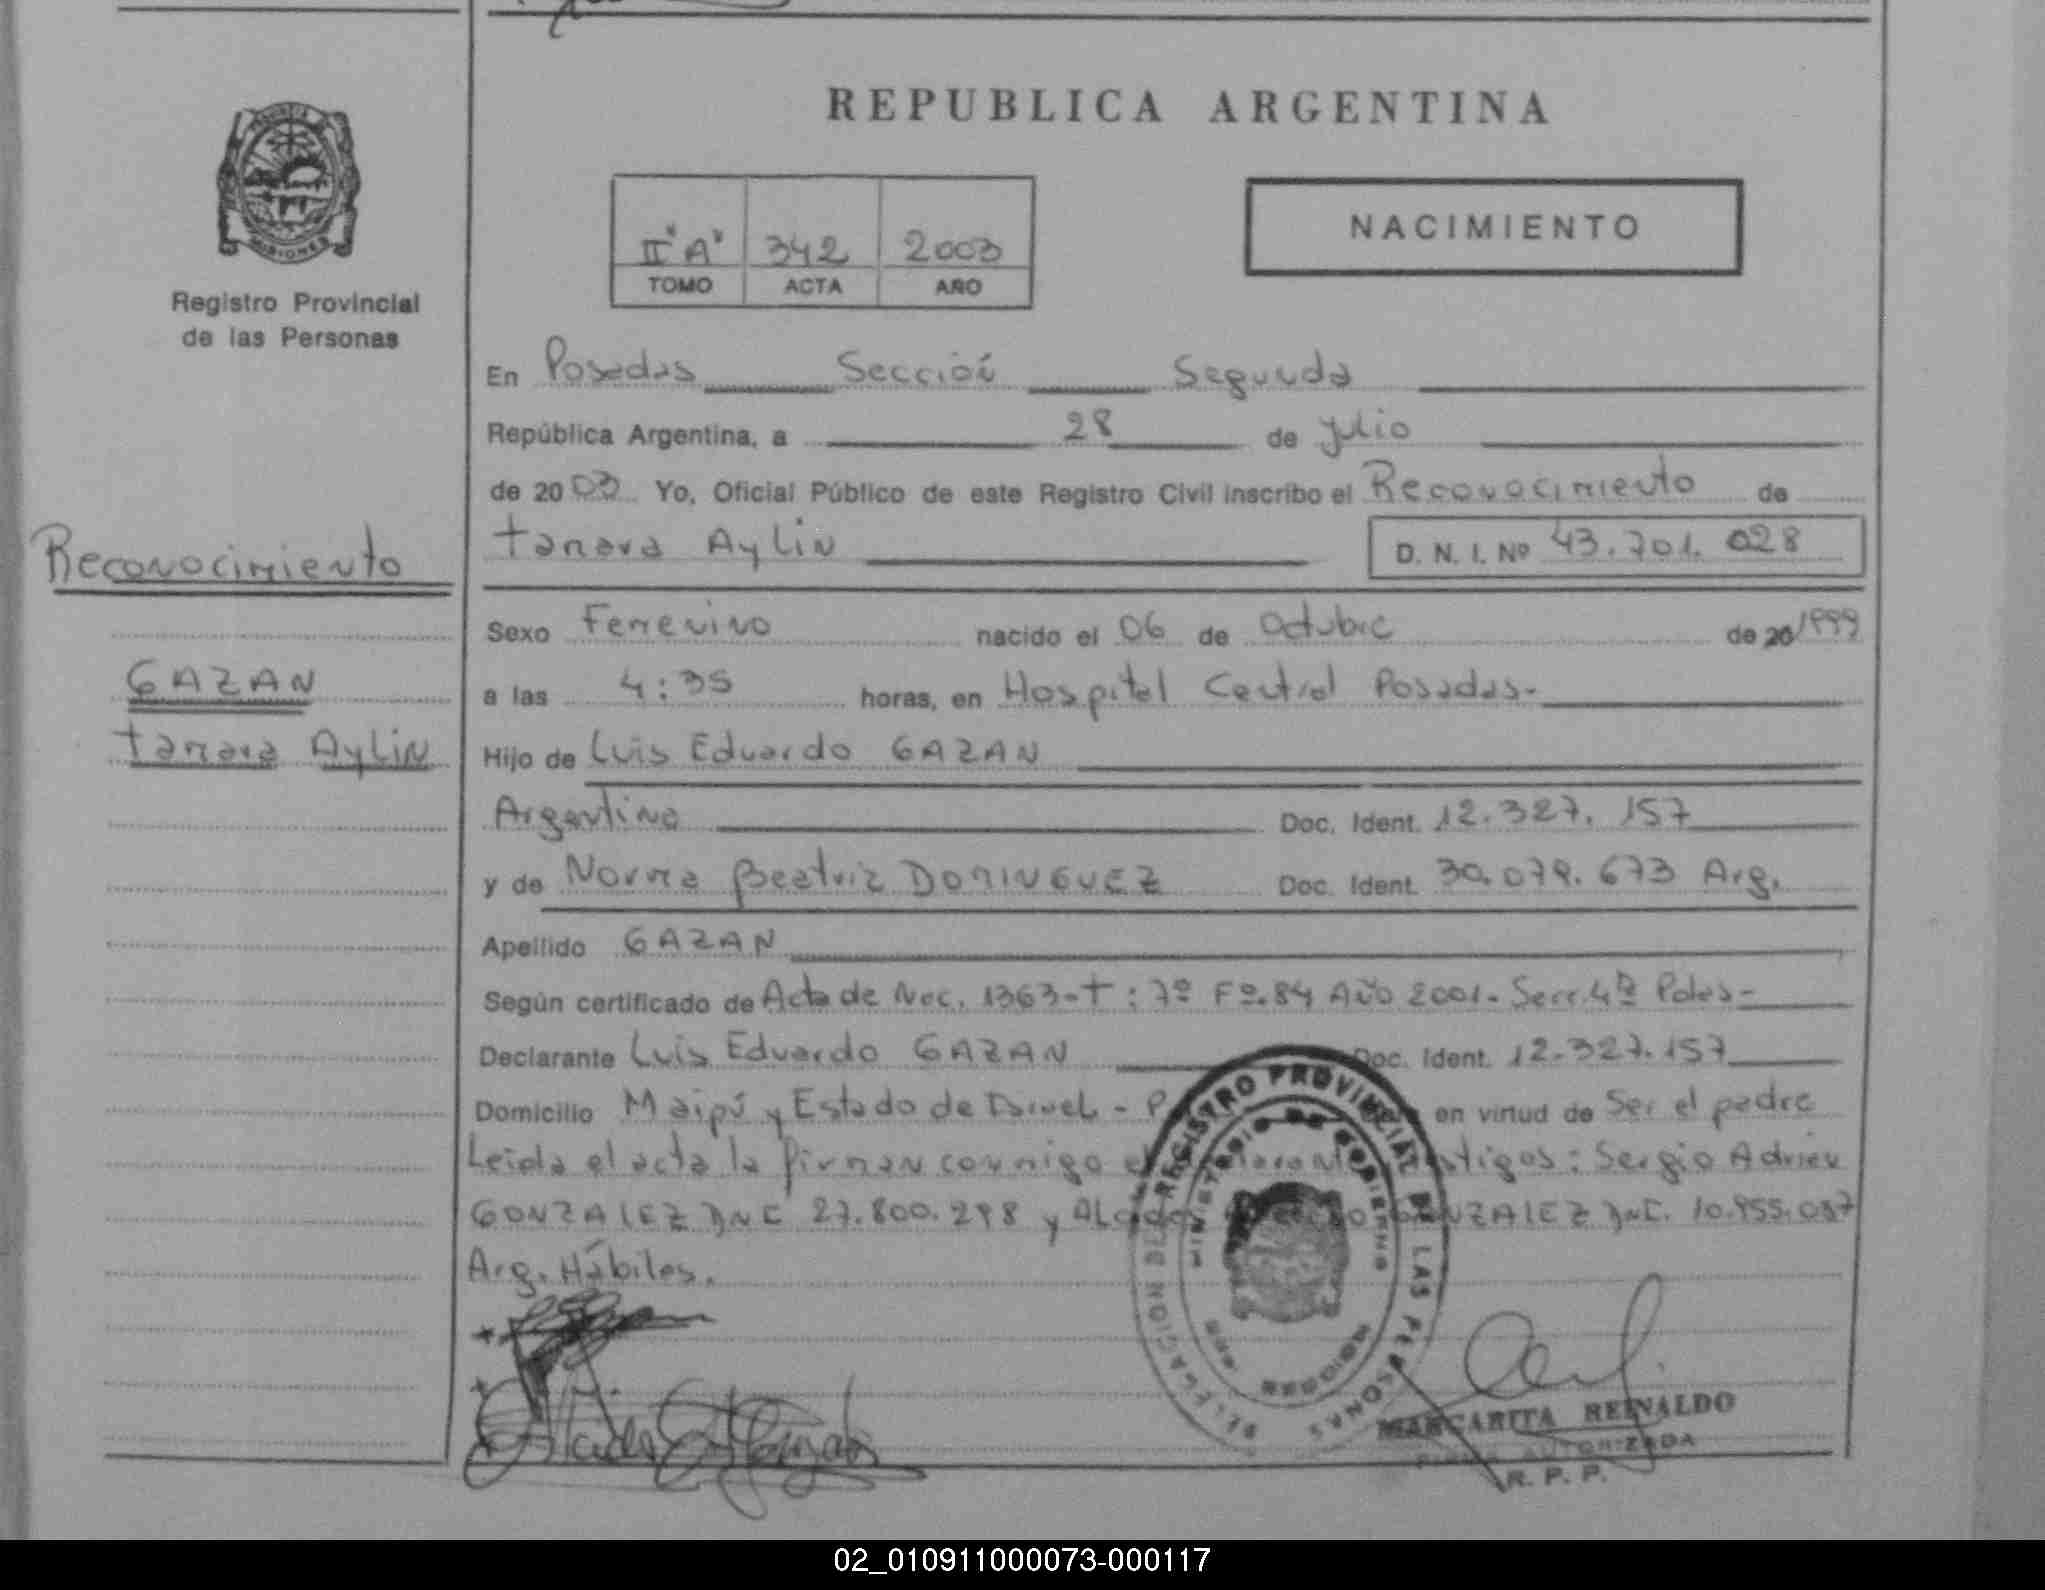 REPUBLICA ARGENTINA
NACIMIENTO
II "A" 342 2003
TOMO ACTA AÑO
MISIONES
Registro Provincial
de las Personas
En Posadas Sección Segunda
República Argentina, a 28 de Julio
de 2003 Yo, Oficial Público de este Registro Civil inscribo el Reconocimiento de
Tamara Aylin D. N. I. Nº 43.701.028
Reconocimiento
Sexo Femenino nacido el 06 de Octubre de 20/1999
GAZAN
a las 4:35 horas, en Hospital Central Posadas.-
Tamara Aylin
Hijo de Luis Eduardo GAZAN
Argentino Doc. Ident. 12.327.157
y de Norma Beatriz DOMINGUEZ Doc. Ident. 30.079.673 Arg.
Apellido GAZAN
Según certificado de Acta de Nac. 1363-T: 7º Fº.84 Año 2001. Secc. 4ª Pdas-
Declarante Luis Eduardo GAZAN Doc. Ident. 12.327.157
Domicilio Maipú y Estado de Israel - en virtud de Ser el padre
Leida el acta la firman conmigo el testigos: Sergio Adrian
GONZALEZ DNI 27.800.298 y GONZALEZ DNI. 10.955.087
Arg. Hábiles.
DELEGACION DEL REGISTRO PROVINCIAL DE LAS PERSONAS
MINISTERIO DE GOBIERNO
MISIONES
MARGARITA REINALDO
FIRMA AUTORIZADA
R. P. P.
02_010911000073-000117